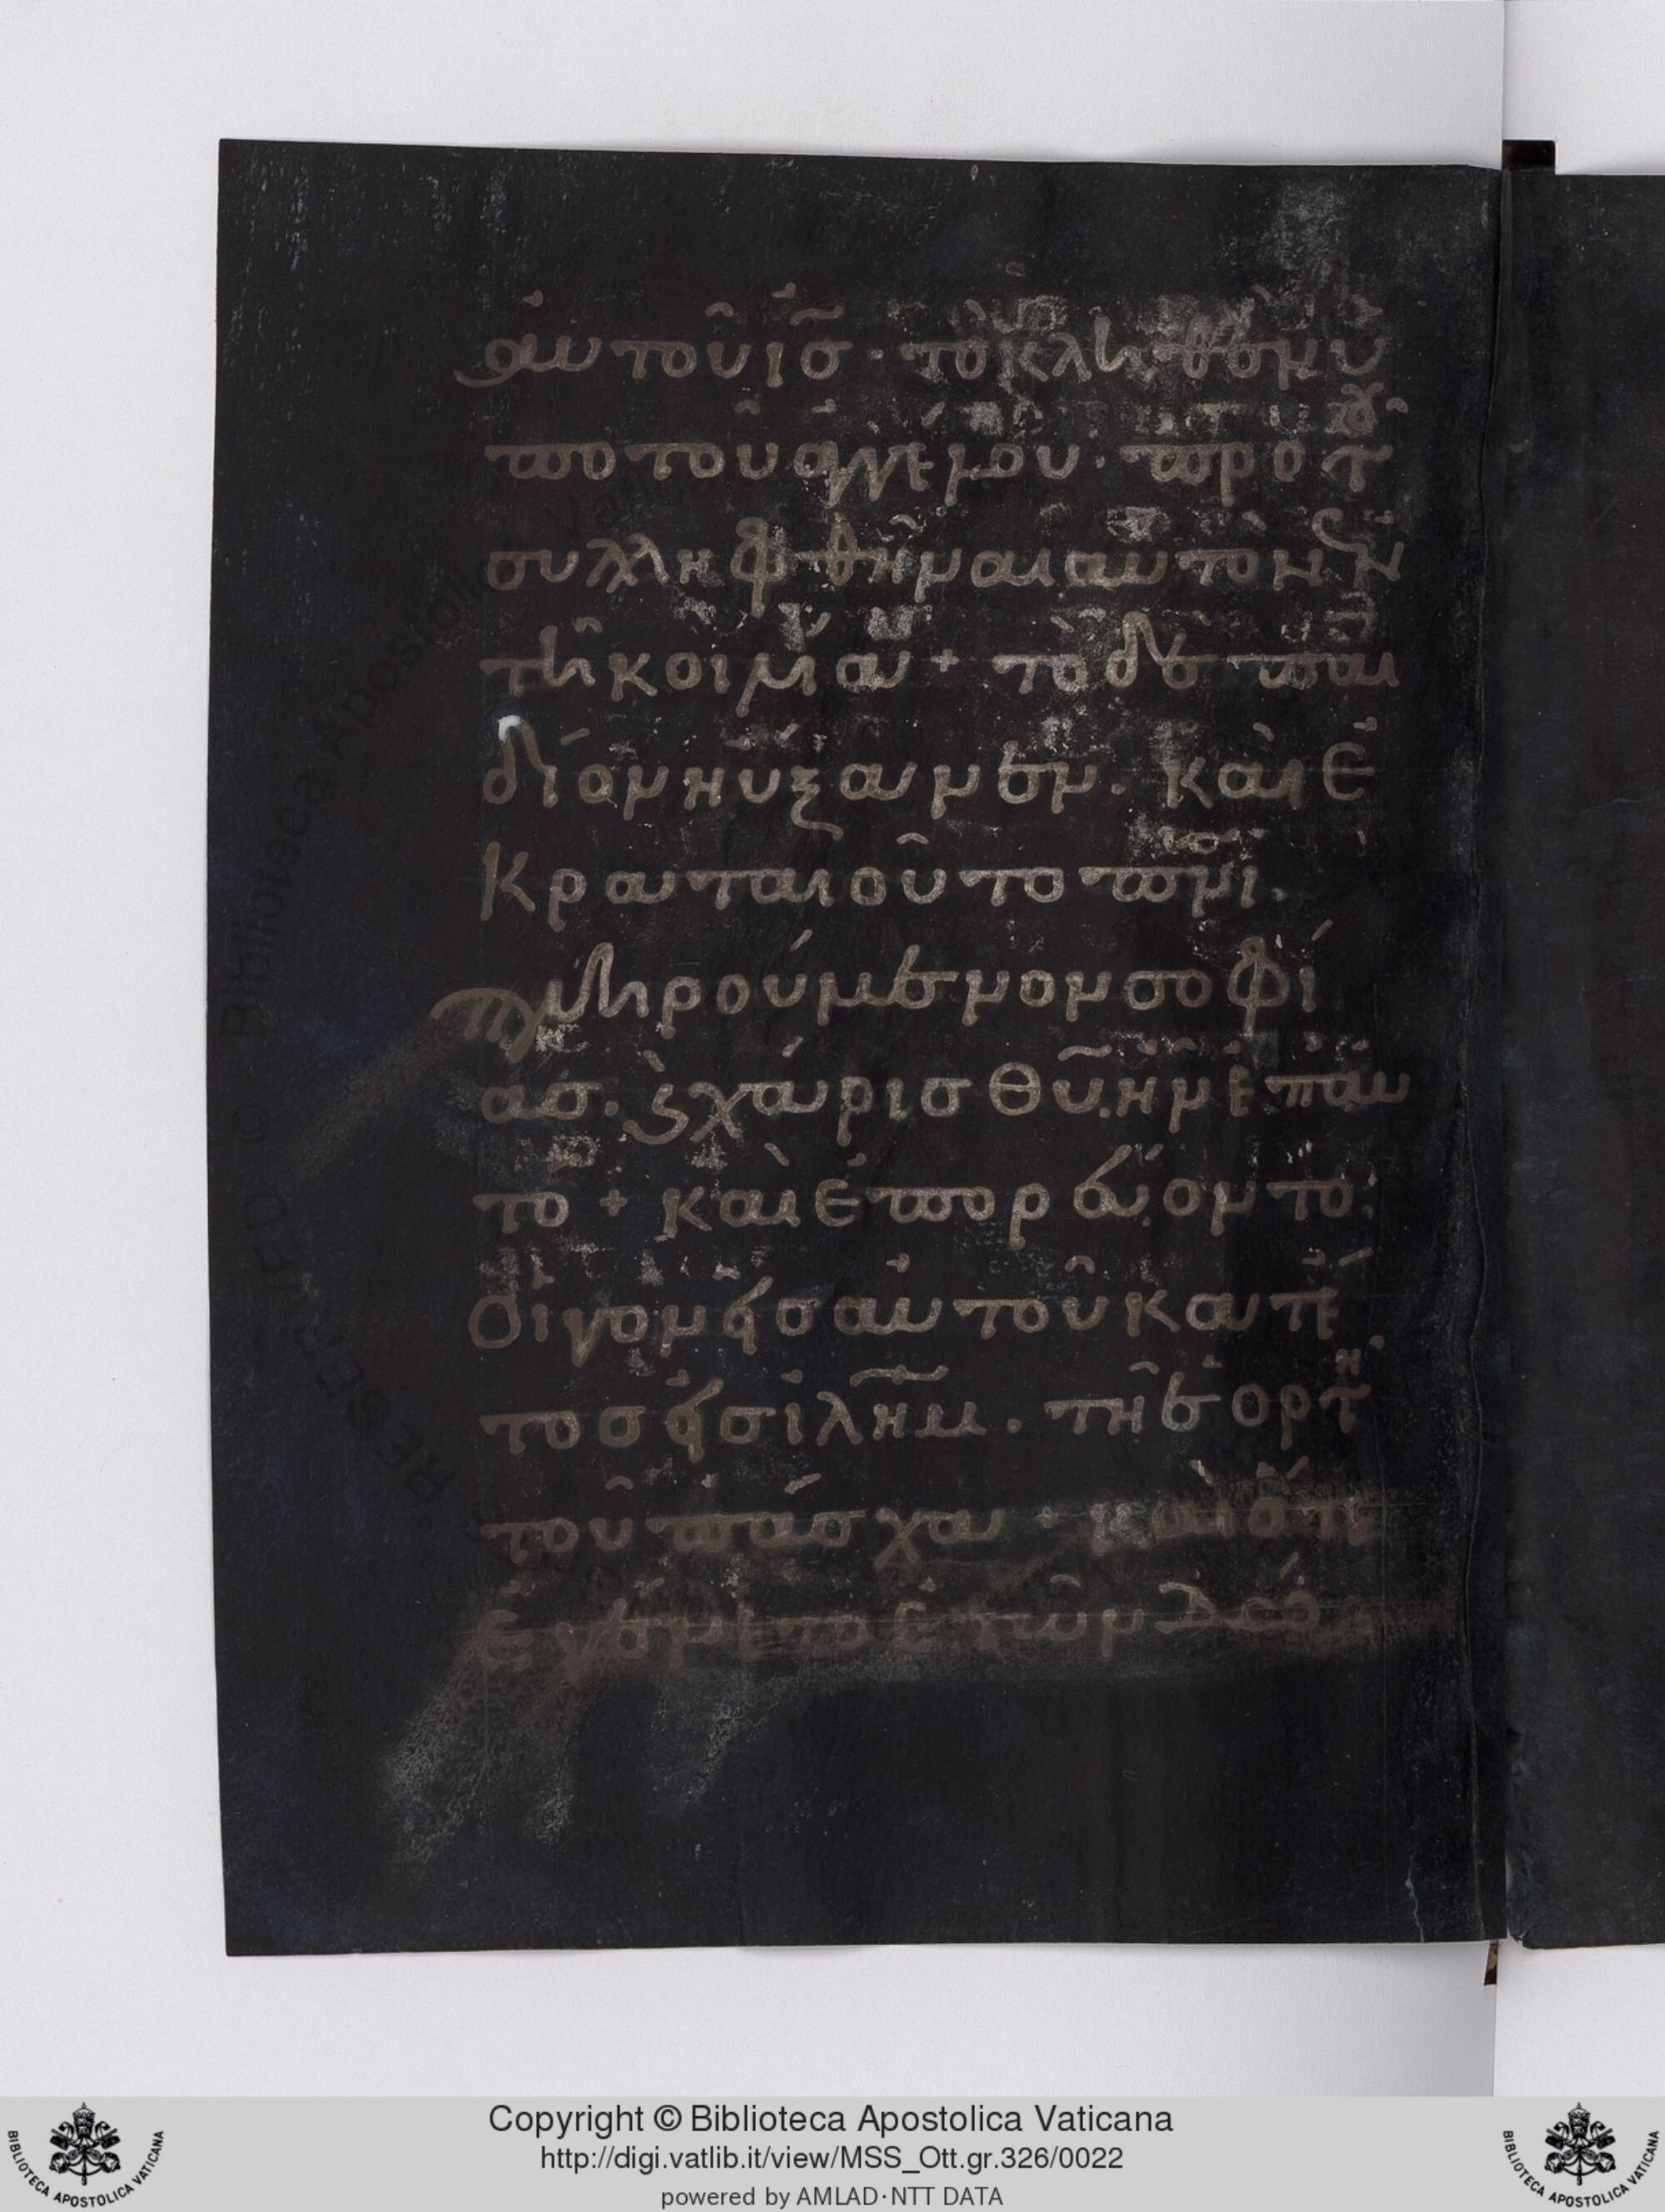 αὐτοῦ ἰς̅ · τὸ κληθὲν ὑ
πὸ τοῦ ἀγγέλου · πρὸ τοῦ
συλληφθῆναι αὐτὸν ἐν
τῇ κοιλία + τὸ δὲ παι
δίον ηὔξανεν · καὶ ἐ
κραταιοῦτο πνι ·
πληρούμενον σοφί
ας · ϗ χάρις θυ ἦν ἐπ αὐ
τό + καὶ ἐπορεύοντο
Οἱ γονεῖς αὐτοῦ κατ ἔ
τος εἰς ἰλημ · τῆ ἑορτῆ
τοῦ πάσχα · καὶ ὅτε
ἐγένετο ἐτῶν
Copyright © Biblioteca Apostolica Vaticana
http://digi.vatlib.it/view/MSS_Ott.gr.326/0022
powered by AMLAD·NTT DATA
BIBLIOTECA APOSTOLICA VATICANA
BIBLIOTECA APOSTOLICA VATICANA